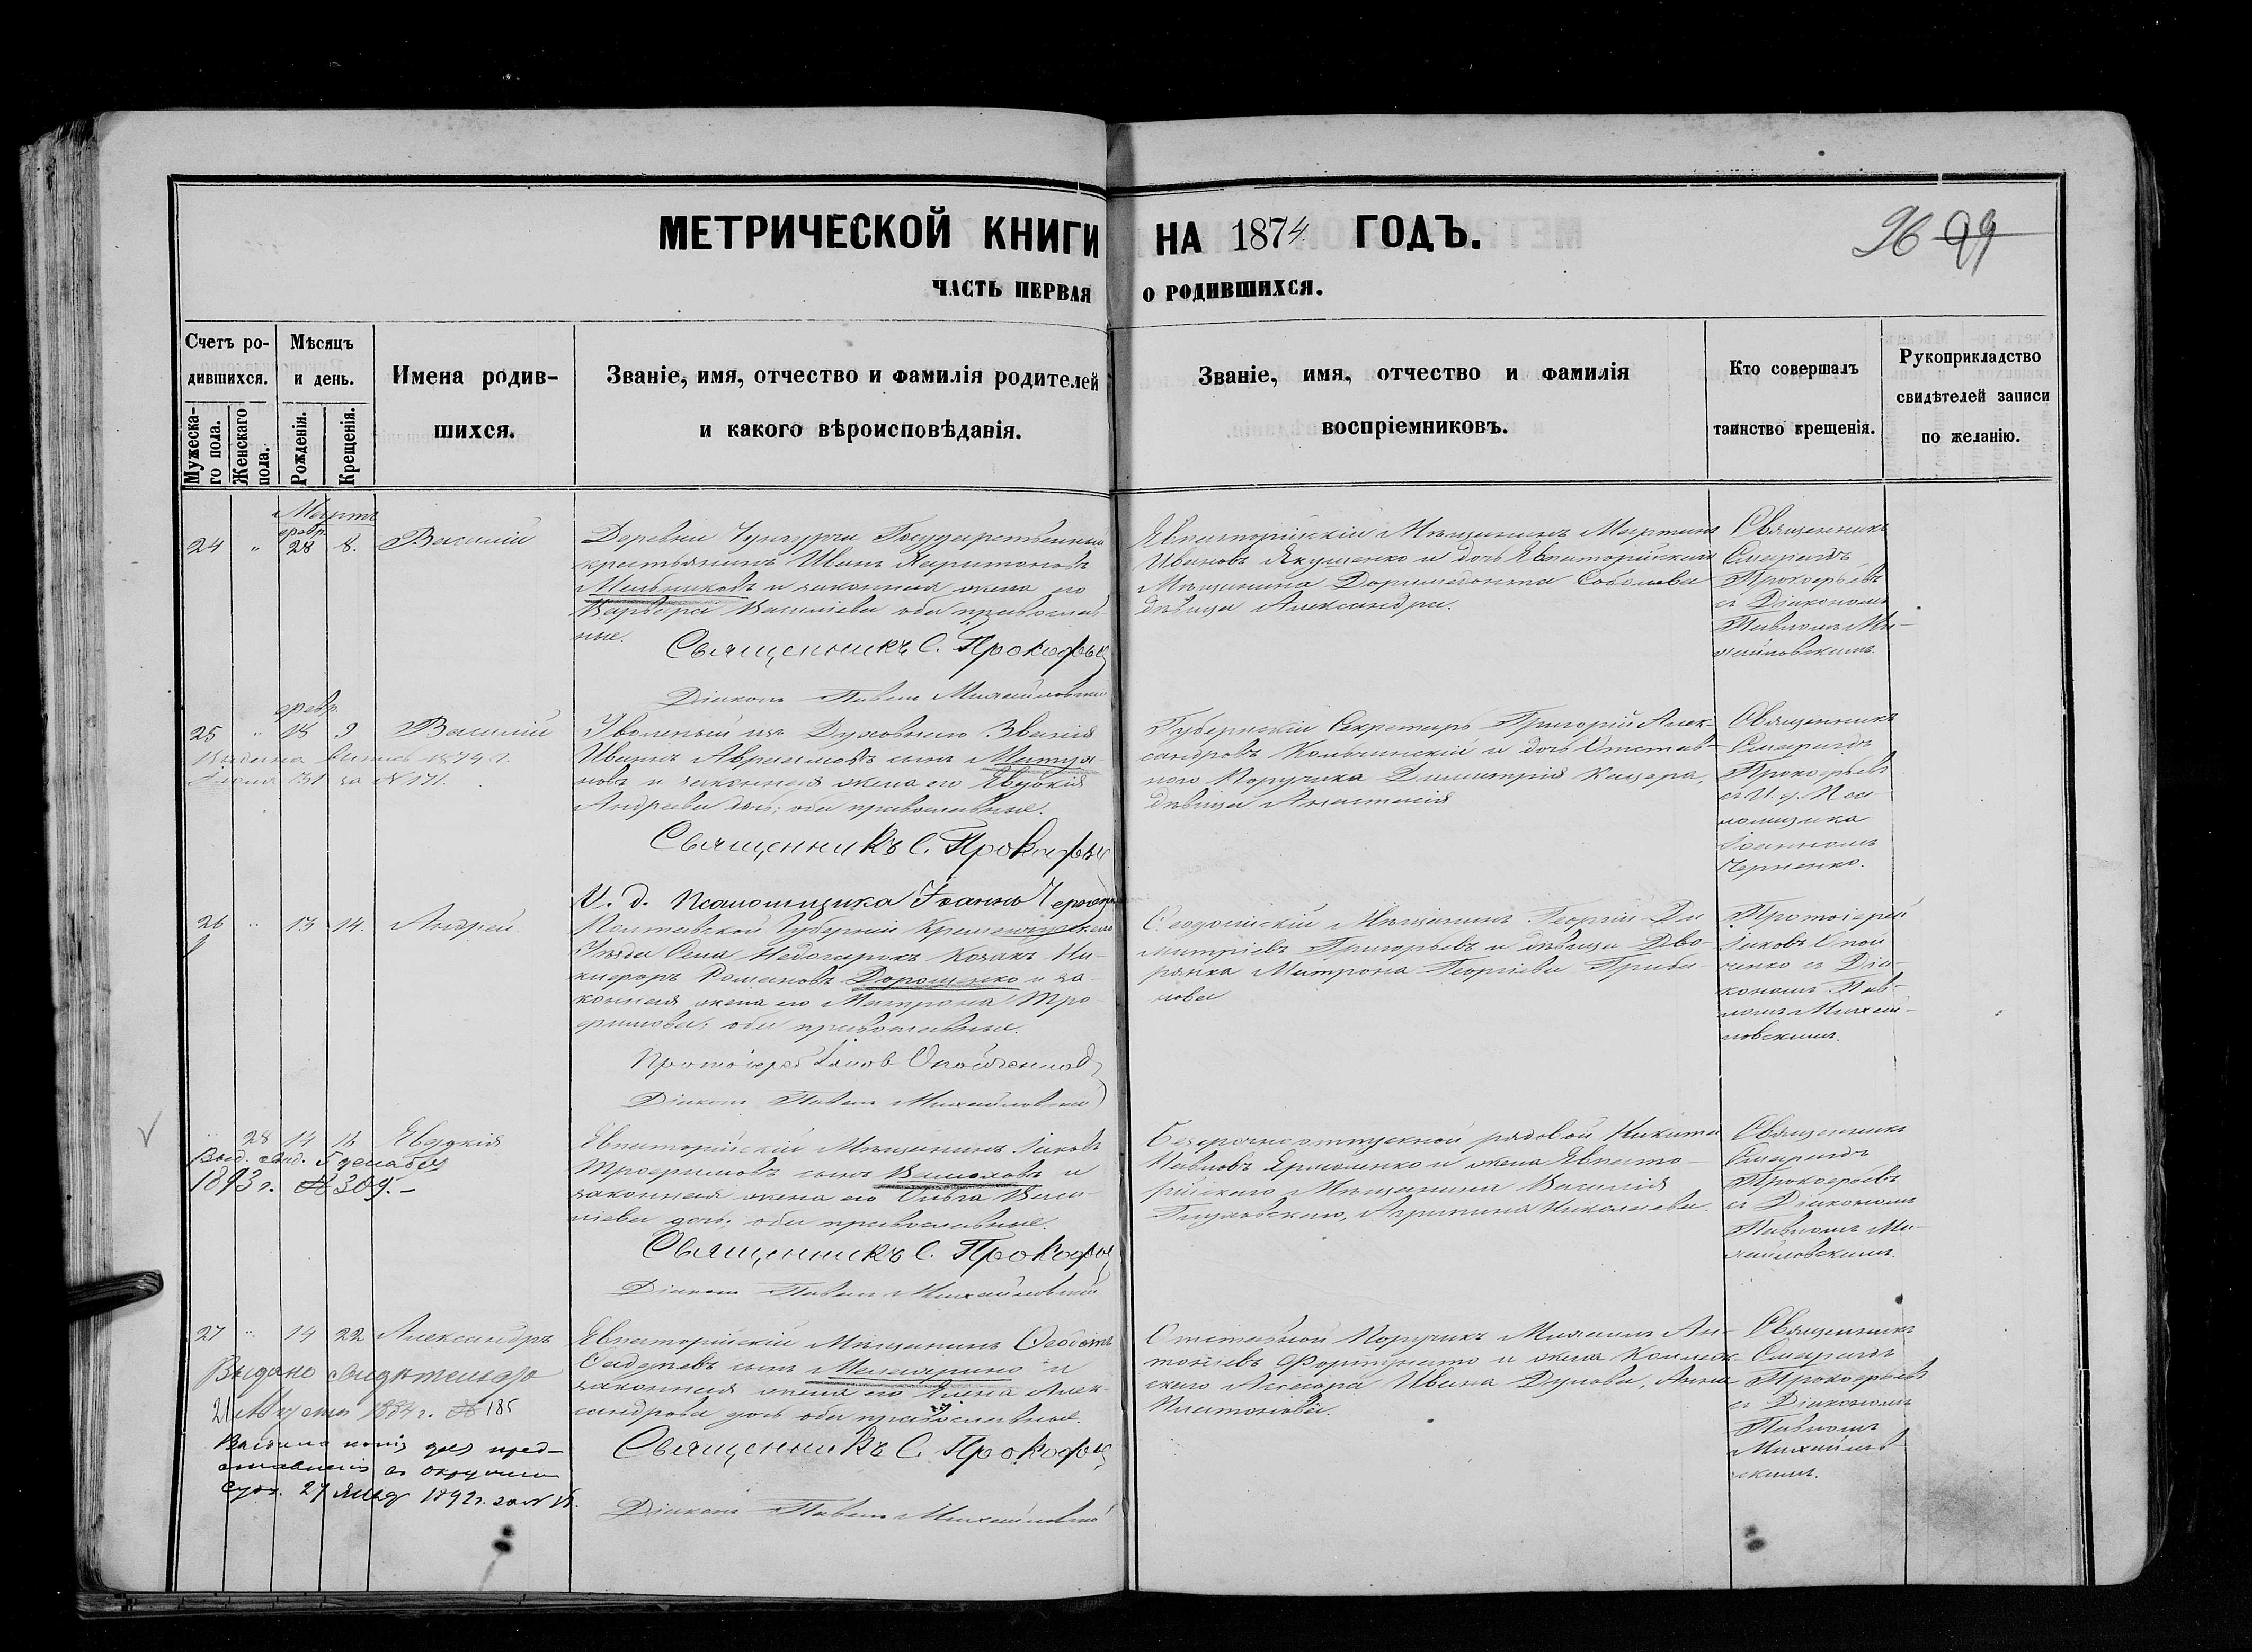 МЕТРИЧЕСКОЙ КНИГИ НА 1874 ГОДЪ.
96 99
ЧАСТЬ ПЕРВАЯ О РОДИВШИХСЯ.
Счетъ ро-
дившихся.
Мужеска-
го пола.
Женскаго
пола.
Мѣсяцъ
и день.
Рожденія.
Крещенія.
Имена родив-
шихся.
Званіе, имя, отчество и фамилія родителей
и какого вѣроисповѣданія.
Званіе, имя, отчество и фамилія
воспріемниковъ.
Кто совершалъ
таинство крещенія.
Рукоприкладство
свидѣтелей записи
по желанію.
Мартъ
февр.
24 " 28 8. Василій
Деревни Государственный
крестьянинъ Иванъ Харитоновъ
Мельниковъ и законная жена его
Варвара Василіева оба православ-
ные.
Священникъ С. Прокофьев
Діаконъ Павелъ Михайловскій
Евпаторійскій Мѣщанинъ Мартинъ
Ивановъ Якущенко и дочь Евпаторійскаго
Мѣщанина Доримедонта Соболева
дѣвица Александра.
Священникъ
Смарагдъ
Прокофьевъ
съ Діакономъ
Павломъ Ми-
хайловскимъ.
февр.
25 " 18 9 Василій
Выдана 1874 г.
за № 171.
Уволеный изъ Духовнаго Званія
Иванъ Авраамовъ сынъ
новъ и законная жена его Евдокія
Андреева дочь; оба православные.
Священникъ С. Прокофьев
И. д. Псаломщика Іоаннъ Черненко
Губернскій Секретарь Григорій Алек-
сандровъ и дочь Отстав-
ного Поручика Димитрія
дѣвица Анастасія
Священникъ
Смарагдъ
Прокофьевъ
съ И. д. Пса-
ломщика
Іоанномъ
Черненко.
26 " 13 14. Андрей
Полтавской Губерніи Кременчугскаго
Уѣзда Села Недогарокъ Козакъ Ни-
кифоръ Романовъ Дорошенко и за-
конная жена его Матрона Тро-
фимова; оба православные.
Протоіерей Іаковъ
Діаконъ Павелъ Михайловскій
Ѳеодосійскій Мѣщанинъ Георгій Ди-
митріевъ Григорьевъ и дѣвица Дво-
рянка Матрона Георгіева
нова
Протоіерей
Іаковъ Опой
ченко съ Діа-
кономъ Пав-
ломъ Михай-
ловскимъ.
28 14 18 Евдокія
Выд. свид. 5 декабря
1893 г. № 309.-
Евпаторійскій Мѣщанинъ Іаковъ
Трофимовъ сынъ и
законная жена его Ольга Васи-
ліева дочь, оба православные.
Священникъ С. Прокофьев
Діаконъ Павелъ Михайловскій
Безсрочно отпускной рядовой Никита
Павловъ Ярмоленко и жена Евпато-
рійскаго Мѣщанина Василія
Глуховскаго, Агрипина Николаева.
Священникъ
Смарагдъ
Прокофьевъ
съ Діакономъ
Павломъ Ми-
хайловскимъ.
27 " 14 22 Александръ
Выдано свидѣтельство
21 Августа 1884 г. № 185
Выдана копія для пред-
ставленія въ окружной
Судъ. 27 1892 г. за №
Евпаторійскій Мѣщанинъ
сынъ и
законная жена его Алек-
сандрова дочь оба православные.
Священникъ С. Прокофьев
Діаконъ Павелъ Михайловскій
Отставной Поручикъ Михаилъ Ан-
тоніевъ и жена Коллеж-
скаго Ассесора Ивана Дулова, Анна
Платонова.
Священникъ
Смарагдъ
Прокофьевъ
съ Діакономъ
Павломъ
Михайлов
скимъ.